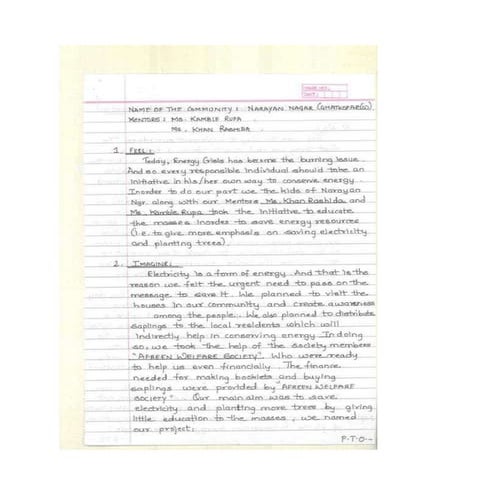 PAGE NO.
DATE:
NAME OF THE COMMUNITY: NARAYAN NAGAR (GHATKOPAR(W))
MENTORS: MS. KAMBLE RUPA.
MS. KHAN RASHIDA.
1. FEEL:
Today, Energy Crisis has become the burning issue.
And so every responsible individual should take an
initiative in his/her own way to conserve energy.
Inorder to do our part we the kids of Narayan
Ngr. along with our Mentors Ms. Khan Rashida and
Ms. Kamble Rupa took the initiative to educate
the masses inorder to save energy resources
(i.e. to give more emphasis on saving electricity
and planting trees).
2. IMAGINE:
Electricity is a form of energy. And that is the
reason we felt the urgent need to pass on the
message to save it. We planned to visit the
houses in our community and create awareness
among the people. We also planned to distribute
saplings to the local residents which will
indirectly help in conserving energy. In doing
so, we took the help of the society members
"AFREEN WELFARE SOCIETY". Who were ready
to help us even financially. The finance
needed for making booklets and buying
saplings were provided by "AFREEN WELFARE
SOCIETY". Our main aim was to save
electricity and planting more trees by giving
little education to the masses, we named
our project.
P.T.O—